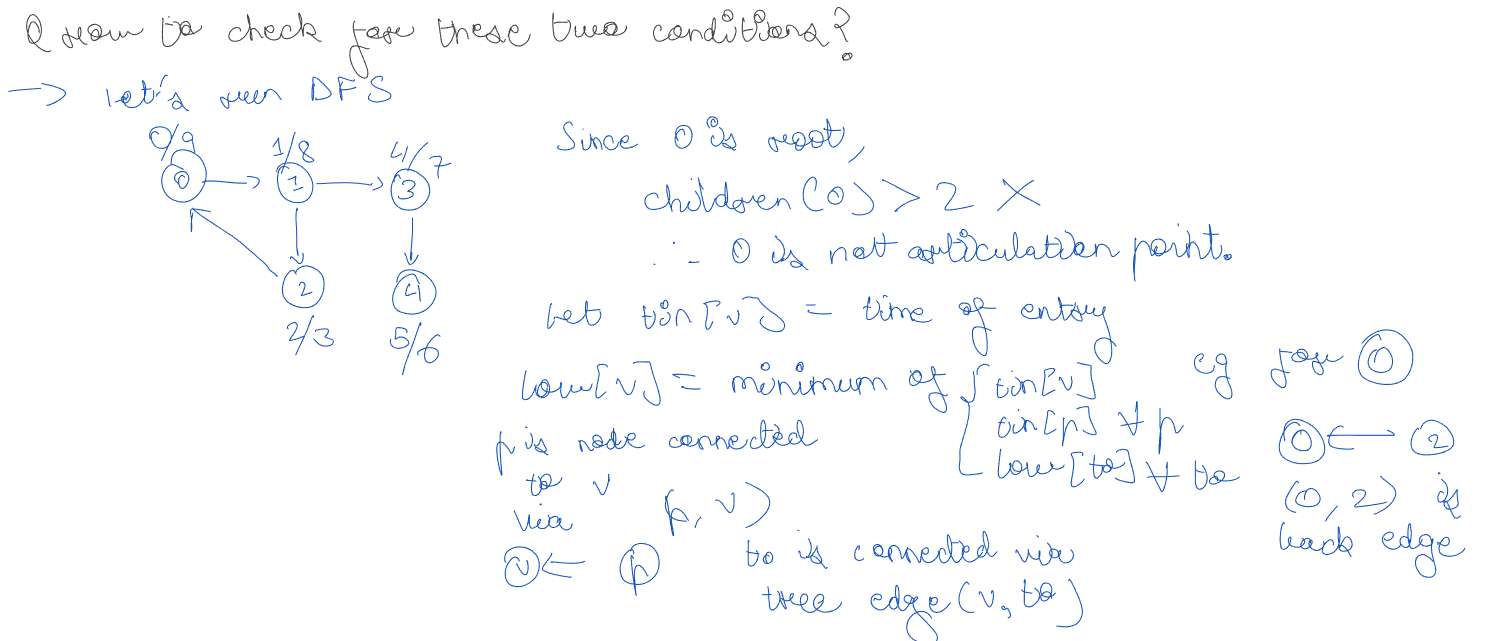 Q How to check for these two conditions?
→ Let's run DFS
0/9
1/8
4/7
0
1
3
2
4
2/3
5/6
Since 0 is root,
children(0) > 2 ×
∴ 0 is not articulation point.
Let tin[v] = time of entry
low[v] = minimum of { tin[v]
tin[p] ∀ p
low[to] ∀ to
p is node connected
to v
via (p, v)
v ← p
to is connected via
tree edge (v, to)
eg for 0
0 ↔ 2
(0, 2) is
back edge